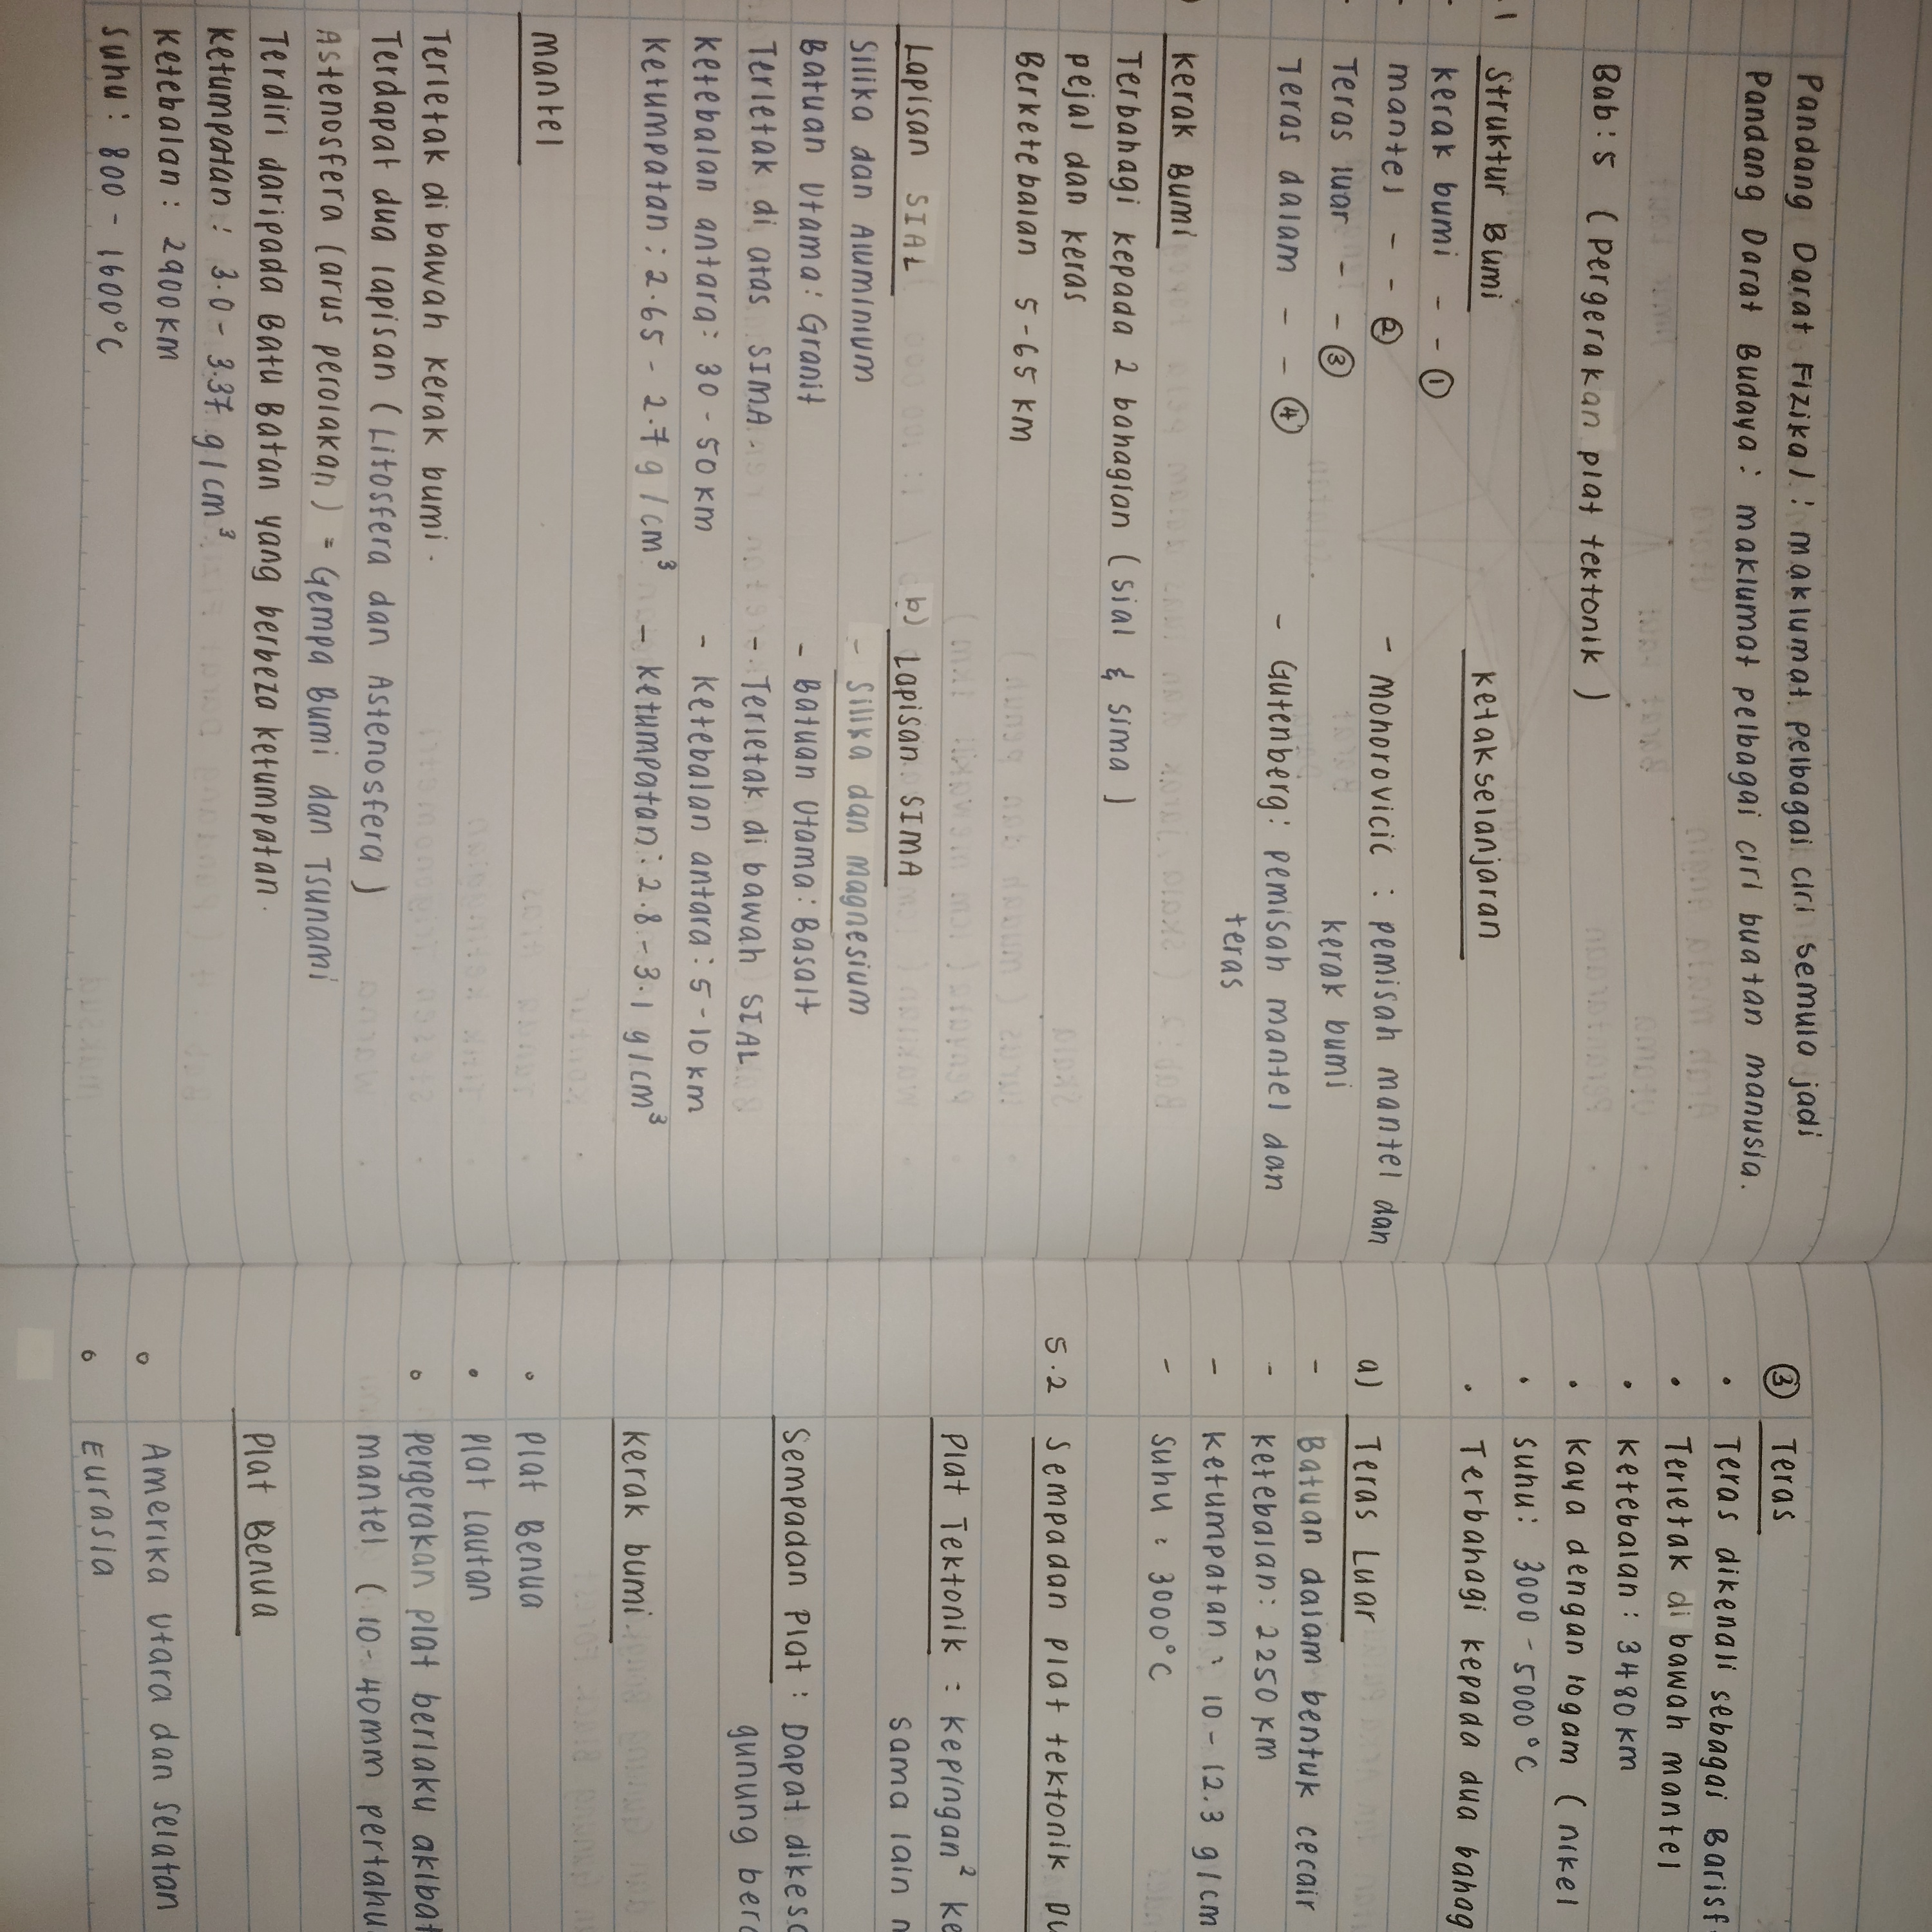 Pandang Darat Fizikal : maklumat pelbagai ciri semula jadi
Pandang Darat Budaya : maklumat pelbagai ciri buatan manusia.
Bab : 5 ( Pergerakan plat tektonik )
.1 Struktur Bumi
Ketakselanjaran
kerak bumi - - ①
mantel - - ②
Teras luar - - ③
Teras dalam - - ④
- Mohorovicic : pemisah mantel dan
kerak bumi
- Gutenberg : pemisah mantel dan
teras
) Kerak Bumi
Terbahagi kepada 2 bahagian ( sial & sima )
pejal dan keras
Berketebalan 5 - 65 km
Lapisan SIAL
Silika dan Aluminium
Batuan Utama : Granit
Terletak di atas SIMA
ketebalan antara : 30 - 50 km
ketumpatan : 2.65 - 2.7 g/cm³
b) Lapisan SIMA
- Silika dan magnesium
- Batuan Utama : Basalt
- Terletak di bawah SIAL
- ketebalan antara : 5 - 10 km
- ketumpatan : 2.8 - 3.1 g/cm³
mantel
Terletak di bawah kerak bumi.
Terdapat dua lapisan ( Litosfera dan Astenosfera )
Astenosfera (arus perolakan) = Gempa Bumi dan Tsunami
Terdiri daripada Batu Batan yang berbeza ketumpatan.
ketumpatan : 3.0 - 3.37 g/cm³
ketebalan : 2900 km
Suhu : 800 - 1600°C
③ Teras
• Teras dikenali sebagai Barisf
• Terletak di bawah mantel
• ketebalan : 3480 km
• kaya dengan logam ( nikel
• Suhu : 3000 - 5000°C
• Terbahagi kepada dua bahag
a) Teras Luar
- Batuan dalam bentuk cecair
- ketebalan : 2250 km
- ketumpatan : 10 - 12.3 g/cm
- Suhu : 3000°C
5.2 Sempadan plat tektonik
Plat Tektonik : kepingan² ke
sama lain
Sempadan Plat : Dapat dikesa
gunung bera
kerak bumi
• plat Benua
• plat lautan
• pergerakan plat berlaku akibat
mantel ( 10 - 40mm pertahu
Plat Benua
• Amerika Utara dan Selatan
• Eurasia